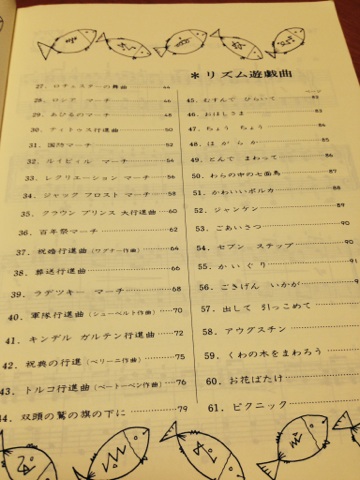 27. ロチェスターの舞曲 44
28. ロング マーチ 46
29. あひるのマーチ 48
30. ティトゥス行進曲 50
31. 国際マーチ 52
32. ルイビィル マーチ 54
33. レクリエーション マーチ 56
34. ジャック フロスト マーチ 58
35. クラウン プリンス 大行進曲 60
36. 百年祭マーチ 62
37. 祝婚行進曲(ワグナー作曲) 64
38. 葬送行進曲 66
39. ラデツキー マーチ 68
40. 軍隊行進曲(シューベルト作曲) 70
41. キンデル ガルテン行進曲 72
42. 祝典の行進(ベリーニ作曲) 75
43. トルコ行進曲(ベートーベン作曲) 76
44. 双頭の鷲の旗の下に 79
*リズム遊戯曲
45. むすんで ひらいて 82
46. おほしさま
47. ちょう ちょう
48. は が ら か
49. とんで まわって 86
50. わらの中の七面鳥 87
51. かわいいポルカ 88
52. ジャンケン 89
53. ごあいさつ 89
54. セブン ステップ 90
55. か い ぐ り 91
56. ごきげん いかが
57. 出して 引っこめて
58. アウグスチン
59. くわの木をまわろう
60. お花ばたけ
61. ピクニック